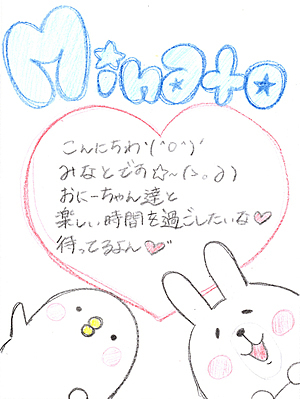 Minato
こんにちわ'(^O^)'
みなとです☆~(>。∂)
おにーちゃん達と
楽しい時間を過ごしたいな♡
待ってるよん♡"